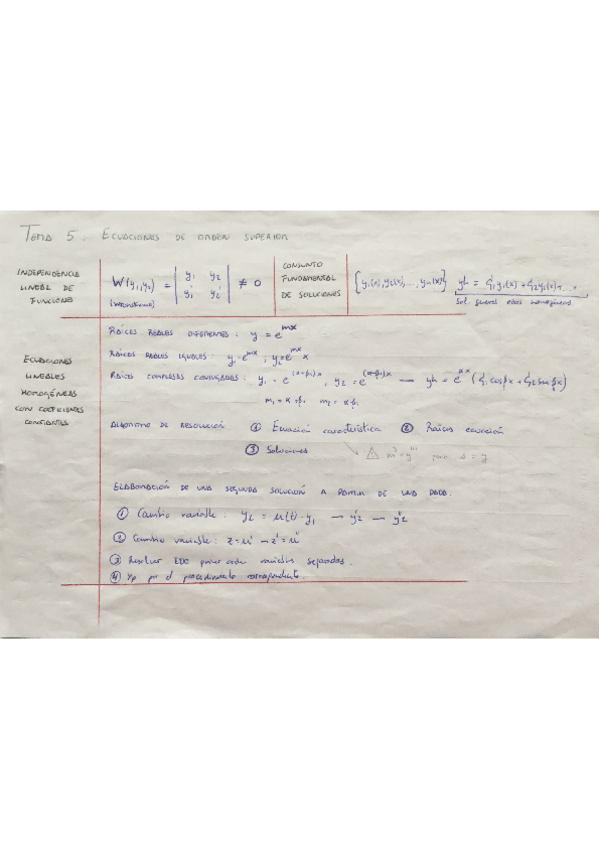 TEMA 5: ECUACIONES DE ORDEN SUPERIOR
INDEPENDENCIA
LINEAL DE
FUNCIONES
W(y1,y2) = | y1 y2 | ≠ 0
(Wronskiano) | y1' y2' |
CONJUNTO
FUNDAMENTAL
DE SOLUCIONES
{y1(x), y2(x), ..., yn(x)} yh = C1y1(x) + C2y2(x) + ...
Sol. general
ECUACIONES
LINEALES
HOMOGÉNEAS
CON COEFICIENTES
CONSTANTES
RAÍCES REALES DIFERENTES: y = e^mx
RAÍCES REALES IGUALES: y1 = e^mx; y2 = e^mx x
RAÍCES COMPLEJAS CONJUGADAS: y1 = e^(α+βi)x, y2 = e^(α-βi)x — yh = e^αx (C1 cos βx + C2 sen βx)
ALGORITMO DE RESOLUCIÓN ① Ecuación característica ② Raíces ecuación
③ Soluciones ⚠ m³ = y''' 1 = y
ELABORACIÓN DE UNA SEGUNDA SOLUCIÓN A PARTIR DE UNA DADA:
① Cambio variable: y2 = u(t)·y1 — y2' — y2''
② Cambio variable: z = u' → z' = u''
③ Resolver EDO primer orden variables separadas.
④ Yp por el procedimiento correspondiente.